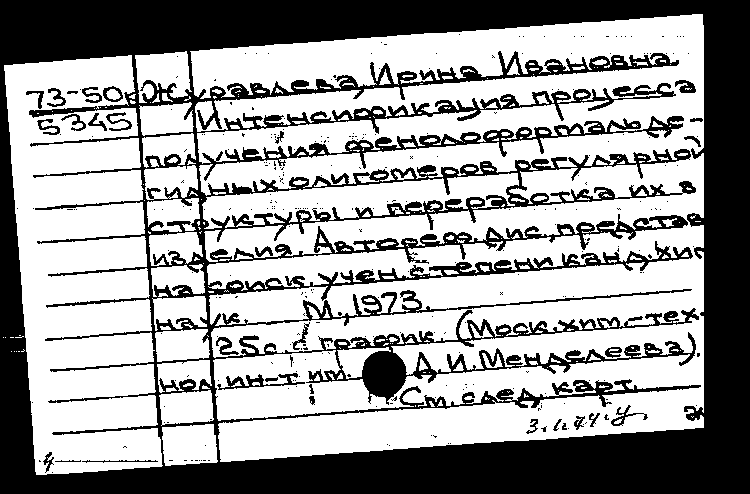 73-50к Журавлева, Ирина Ивановна
5345 Интенсификация процесса
получения фенолоформальде-
гидных олигомеров регулярной
структуры и переработка их в
изделия. Автореф. дис., представ
на соиск. учен. степени канд. хим
наук. М., 1973.
25с. с график. (Моск. хим.-тех-
нол. ин-т им. Д.И. Менделеева).
Ст. след. карт.
4